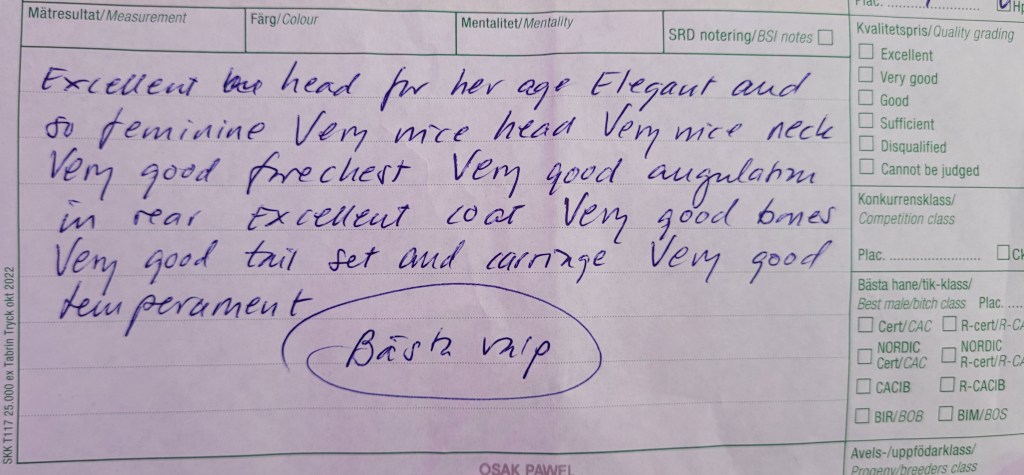 Mätresultat/Measurement
Färg/Colour
Mentalitet/Mentality
SRD notering/BSI notes
Excellent head for her age Elegant and
so feminine Very nice head Very nice neck
Very good forechest Very good angulation
in rear Excellent coat Very good bones
Very good tail set and carriage Very good
temperament
Bästa valp
SKK T117 25.000 ex Tabrin Tryck okt 2022
OSAK PAWEL
Plac.
Kvalitetspris/Quality grading
Excellent
Very good
Good
Sufficient
Disqualified
Cannot be judged
Konkurrensklass/
Competition class
Plac.
Bästa hane/tik-klass/
Best male/bitch class Plac.
Cert/CAC R-cert/R-CA
NORDIC NORDIC
Cert/CAC R-cert/R-CA
CACIB R-CACIB
BIR/BOB BIM/BOS
Avels-/uppfödarklass/
Progeny/breeders class